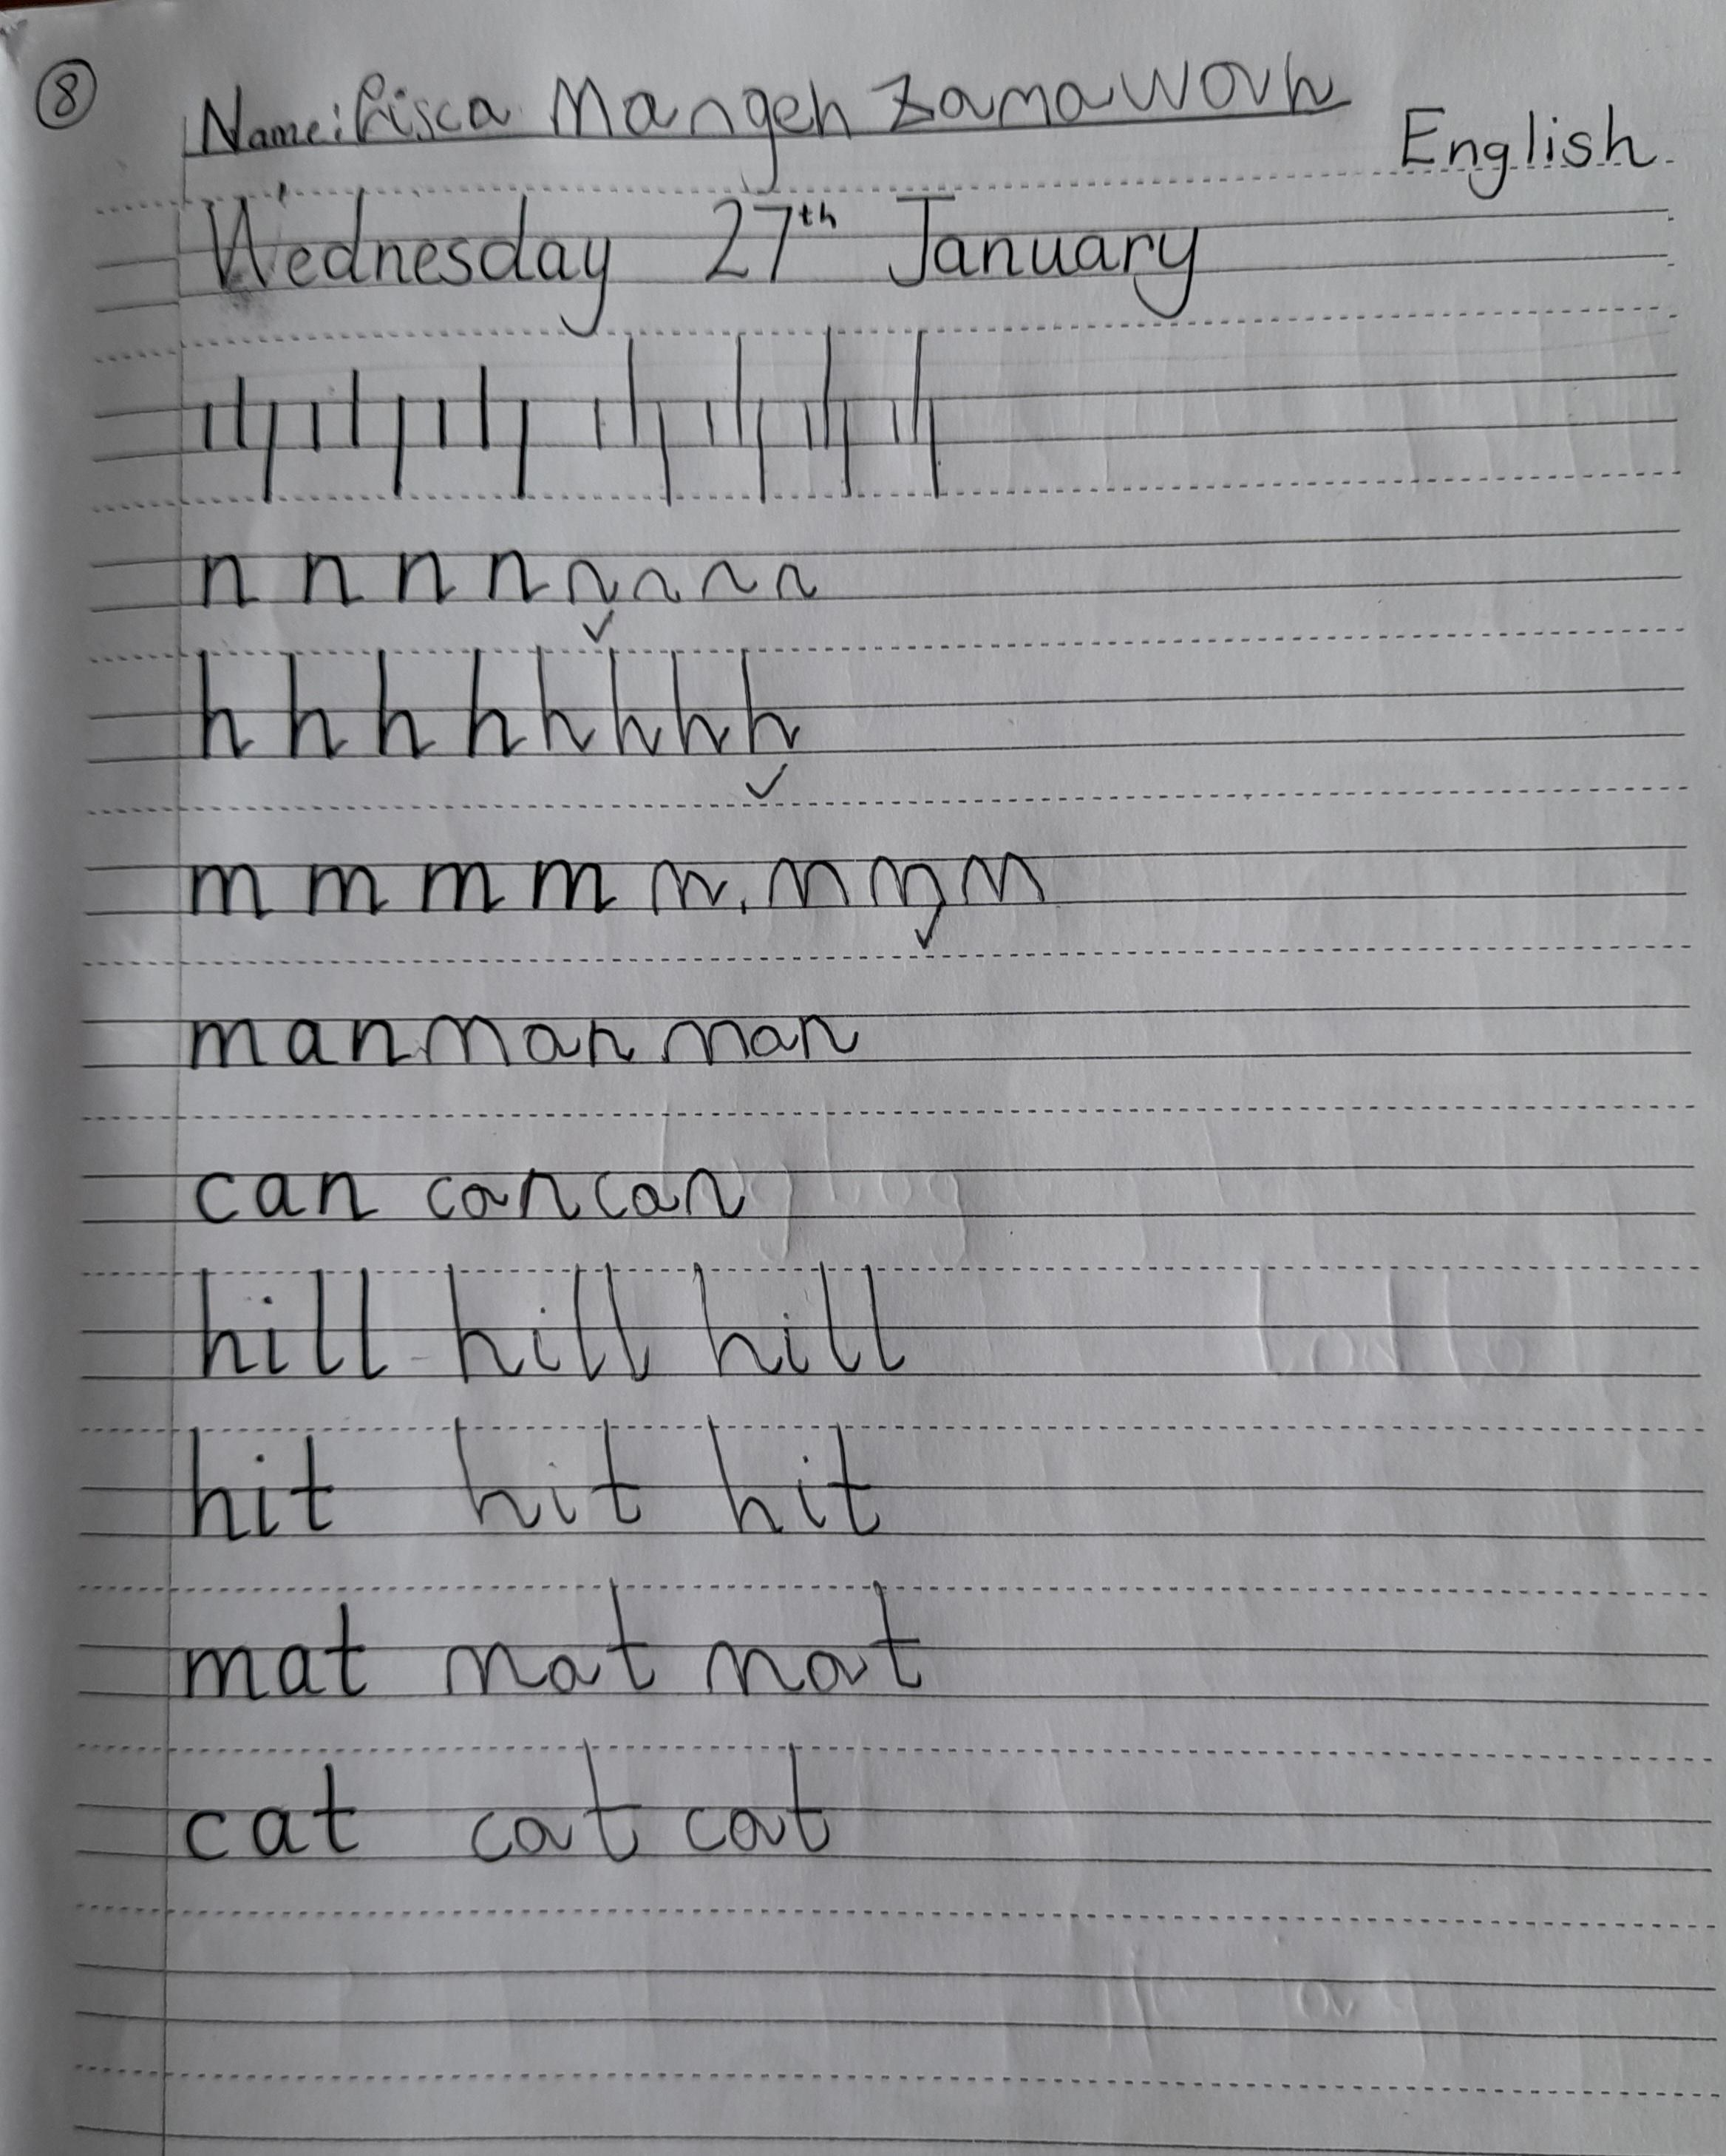 8
Name: Risca Mangeh Zamawoh
English
Wednesday 27th January
n n n n n n n n
h h h h h h h h
m m m m m m m m
man man man
can can can
hill hill hill
hit hit hit
mat mat mat
cat cat cat